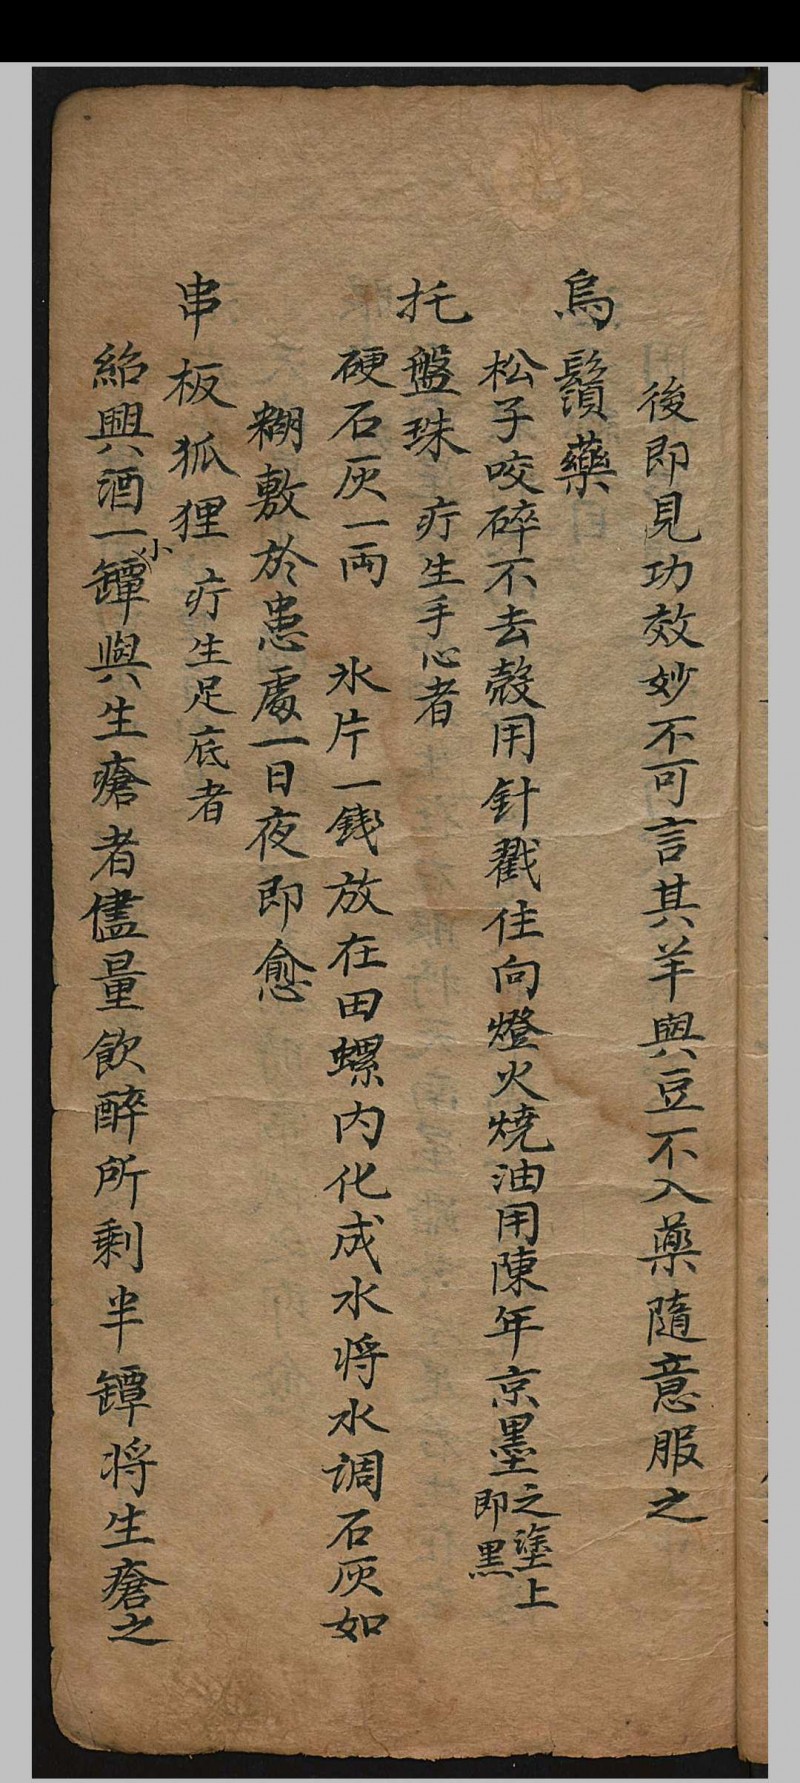 後即見功效妙不可言其羊與豆不入藥隨意服之
烏鬚藥
松子咬碎不去殼用針戳住向燈火燒油用陳年京墨之塗上即黑
托盤珠 疔生手心者
硬石灰一両 氷片一錢放在田螺内化成水将水调石灰如
糊敷於患處一日夜即愈
串板狐狸 疔生足底者
紹興酒一小罈與生瘡者儘量飲醉所剩半罈将生瘡之